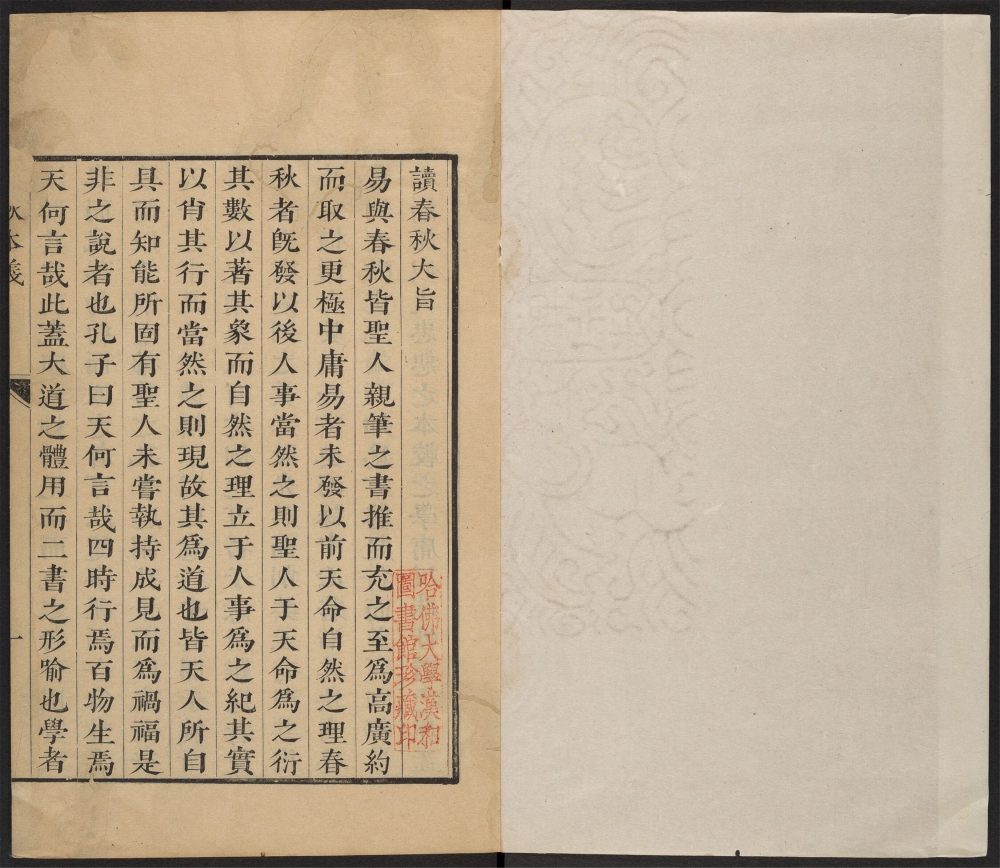 讀春秋大旨
易與春秋皆聖人親筆之書推而充之至爲高廣約
而取之更極中庸易者未發以前天命自然之理春
秋者旣發以後人事當然之則聖人于天命爲之衍
其數以著其象而自然之理立于人事爲之紀其實
以肖其行而當然之則現故其爲道也皆天人所自
具而知能所固有聖人未嘗執持成見而爲禍福是
非之說者也孔子曰天何言哉四時行焉百物生焉
天何言哉此蓋大道之體用而二書之形喻也學者
秋本義
一
哈佛大學漢和
圖書館珍藏印